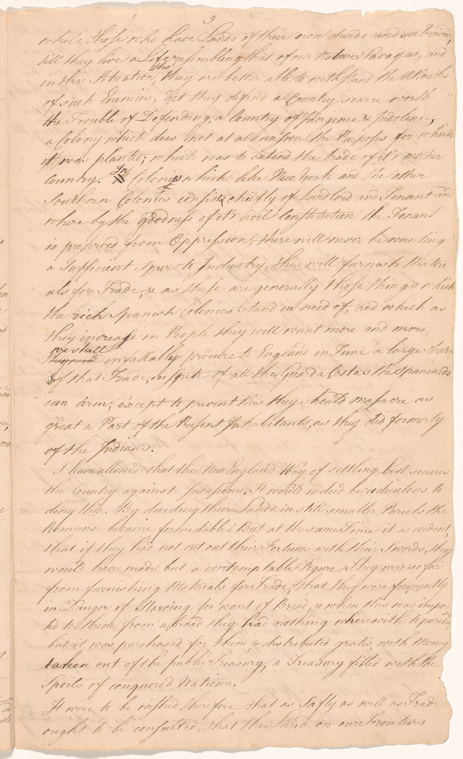 while those who have Lands of their own divide and sell
till they live a Life resembling that of our Savages, and
in this Situation, tho they are better able to withstand the Attacks
of such Enemies, Yet they defend a Country scarce worth
the Trouble of Defending, a Country of Indigence & Indolence,
a Colony which does not at all answer the Purposes for which
it was planted; which was to extend the Trade of it's mother
Country. In Colonies which like New York and the other
Southern Colonies consist chiefly of Landlord and Tenant and
where by the goodness of it's civil Constitution the Tenant
is preserved from Oppression, there will never be wanting
a Sufficient Spur to Industry, this will furnish Materi
als for Trade, & as these are generally those things which
the rich Spanish Colonies stand in need of, and which as
they increase in People they will want more and more,
we shall infallibly procure to England in Time a large Share
of that Trade, in spite of all the Guarda Costas the Spaniards
can arm, except to prevent this they should massacre as
great a Part of the Present Inhabitants, as they did formerly
of the Indians.
I have allowed that the New England Way of settling best secures
the Country against Invasions, It would indeed be ridiculous to
deny this. By dividing their Lands in still smaller Parcels the
Romans became formidable: But at the same Time it is evident,
that if they had not cut out their Fortune with their Swords, they
would have made but a contemptable Figure. They were so far
from furnishing Materials for Trade, that they were frequently
in Danger of Starving for want of Bread, & when this was impor
ted to them from abroad they had nothing wherewith to purchase
but it was purchased for them & distributed gratis with Money
taken out of the public Treasury, a Treasury filled with the
Spoils of conquered Nations.
It were to be wished therefore that as Safty as well as Trade
ought to be consulted, that the Land on our Frontiers